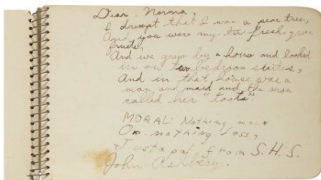 Dear Norma,
I dreamt that I was a pear tree,
And you were my fresh green
fruit,
And we grew by a house and looked
in bedroom
And in that house was a
man and maid and the man
called her "toots"
MORAL: Nothing
Or nothing
from S.H.S.
John Ashbery.